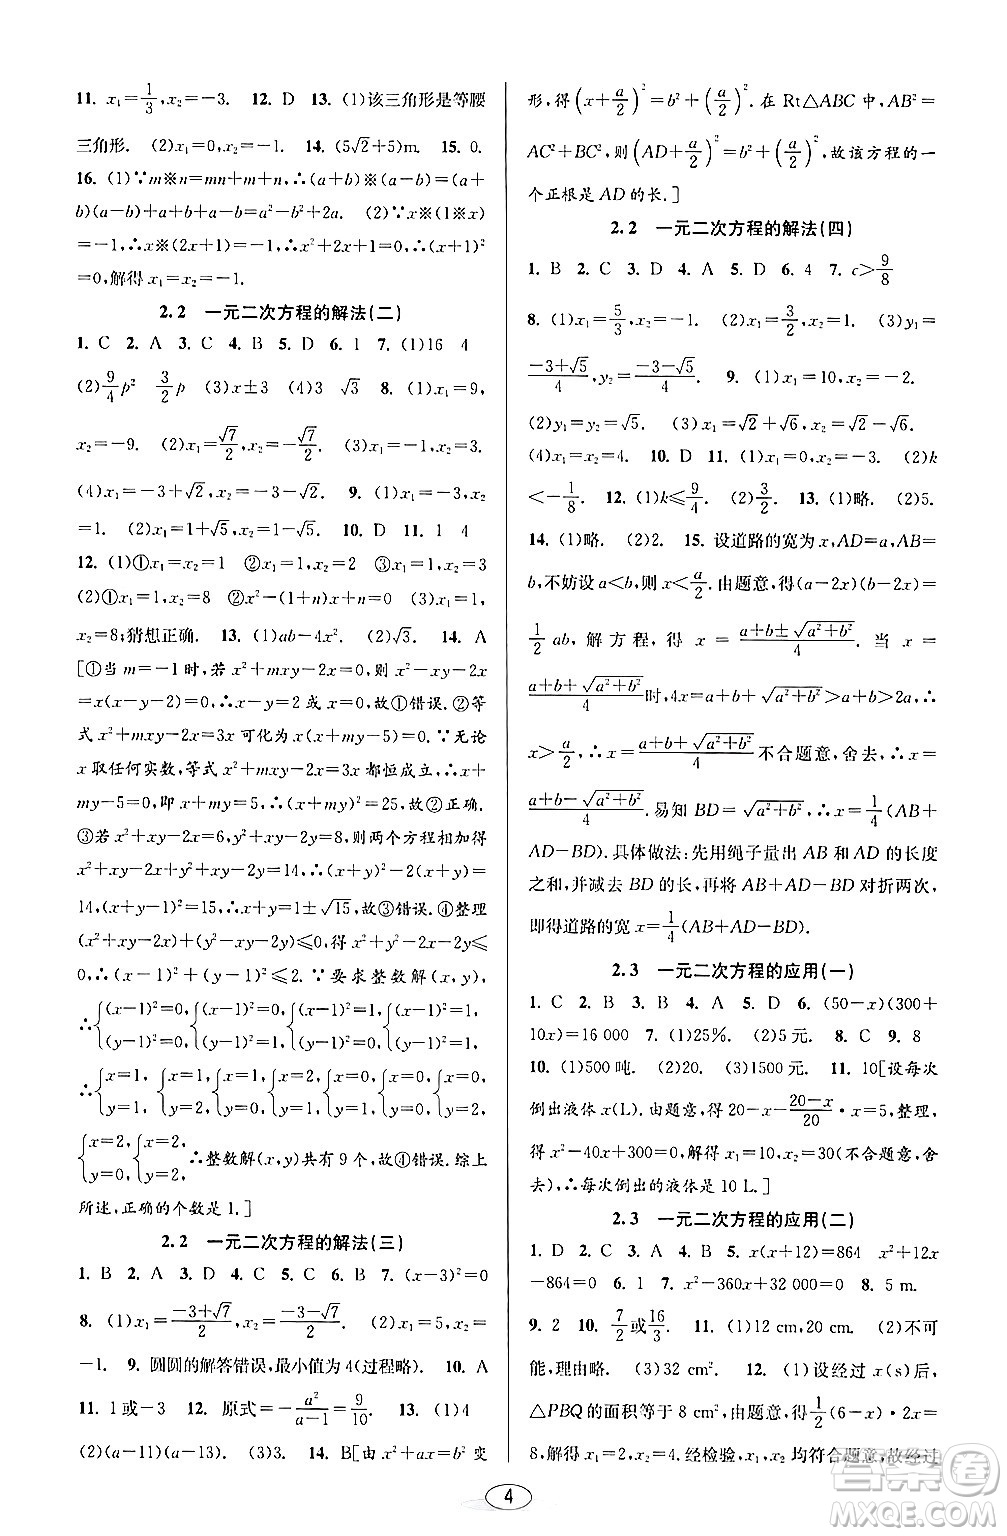 11. x₁=1/3,x₂=−3.  12. D  13. (1)该三角形是等腰
三角形.  (2)x₁=0,x₂=−1.  14. (5√2+5)m.  15. 0.
16. (1)∵m※n=mn+m+n,∴(a+b)※(a−
b)=(a+b)(a−b)+a+b+a−b=a²−b²+2a.  (2)∵x※(x+1)
=−1,∴x※(2x+1)=−1,
=0,解得x₁=x₂=−1.
2.2  一元二次方程的解法(二)
1. C  2. A  3. C  4. B  5. D  6. 1  7. (1)16  4
(2)9/4 p²  3/2 p  (3)x±3  (4)3  √3  8. (1)x₁=9,
x₂=−9.  (2)x₁=√7/2,x₂=−√7/2.  (3)x₁=−1,x₂=3.
(4)x₁=−3+√2,x₂=−3−√2.  9. (1)x₁=−3,x₂
=1.  (2)x₁=1+√5,x₂=1−√5.  10. D  11. 1  4
12. (1)①x₁=x₂=1  ②x₁=1,x₂=2  ③x₁=1,x₂=3
(2)①x₁=1,x₂=8  ②x²−(1+n)x+n=0  (3)x₁=1,
x₂=8;猜想正确.  13. (1)ab−4x².  (2)√3.  14. A
[①当m=−1时,若x²+mxy−2x=0,则x²−xy−2x
=x(x−y−2)=0,x=0或x−y−2=0,故①错误.②等
式x²+mxy−2x=3x可化为x(x+my−5)=0.∵无论
x取任何实数,等式x²+mxy−2x=3x都恒成立,∴x
+my−5=0,即x+my=5,故②正确.
③若x²+xy−2x=6,y²+xy−2y=8,则两个方程相加得
x²+2xy+y²−2x−2y=14,∴(x+y)²−2(x+y)=
14,∴(x+y−1)²=15,∴x+y=1±√15,故③错误.④整理
(x²+xy−2x)+(y²−xy−2y)≤0,得(x−1)²+(y−1)²−2≤
0,∴(x−1)²+(y−1)²≤2.∵要求整数解(x,y),
∴{(x−1)²=0,(y−1)²=0或{(x−1)²=0,(y−1)²=1或{(x−1)²=1,(y−1)²=0或{(x−1)²=1,(y−1)²=1.
{x=2,y=2或{x=2,y=0.∴整数解(x,y)共有9个,故④错误.综上
所述,正确的个数是1.]
2.2  一元二次方程的解法(三)
1. B  2. D  3. D  4. C  5. B  6. C  7. (x−3)²=0
8. (1)x₁=(−3+√7)/2,x₂=(−3−√7)/2.  (2)x₁=5,x₂=
−1.  9. 圆圆的解答错误,最小值为4(过程略).  10. A
11. 1或−3  12. 原式=−a²/(a−1)=9/10.  13. (1)4
(2)(a−11)(a−13).  (3)3.  14. B[由x²+ax=b²变
形,得(x+a/2)²=b²+(a/2)².在Rt△ABC中,AB²=
AC²+BC²,则(AD+a/2)²=b²+(a/2)²,故该方程的一
个正根是AD的长.]
2.2  一元二次方程的解法(四)
1. B  2. C  3. C  4. A  5. D  6. 4  7. c>9/8
8. (1)x₁=5/3,x₂=−1.  (2)x₁=3/2,x₂=1.  (3)y₁=
(−3+√5)/4,y₂=(−3−√5)/4.  9. (1)x₁=10,x₂=−2.
(2)y₁=y₂=√2.  (3)x₁=√2+√6,x₂=√2−√6.
(4)x₁=x₂=4.  10. D  11. (1)x₁=0,x₂=−3.  (2)k
<−1/8.  12. (1)k≤9/4.  (2)3/2.  13. (1)略.  (2)5.
14. (1)略.  (2)2.  15. 设道路的宽为x,AD=a,AB=
b,不妨设a<b,则x<a/2.由题意,得(a−2x)(b−2x)=
1/2 ab,解方程,得x=(a+b±√(a²+b²))/4.当x=
(a+b+√(a²+b²))/4时,4x=a+b+√(a²+b²)>a+b>2a,∴
x>a/2,∴x=(a+b+√(a²+b²))/4不合题意,舍去,∴x=
(a+b−√(a²+b²))/4.易知BD=√(a²+b²),∴x=1/4(AB+
AD−BD).具体做法:先用绳子量出AB和AD的长度
之和,并减去BD的长,再将AB+AD−BD对折两次,
即得道路的宽x=1/4(AB+AD−BD).
2.3  一元二次方程的应用(一)
1. C  2. B  3. B  4. A  5. D  6. (50−x)(300+
10x)=16 000  7. (1)25%.  (2)5元.  8. C  9. 8
10. (1)500吨.  (2)20.  (3)1500元.  11. 10[设每次
倒出液体x(L).由题意,得20−x−(20−x)/20·x=5,整理,
得x²−40x+300=0,解得x₁=10,x₂=30(不合题意,舍
去),∴每次倒出的液体是10 L.]
2.3  一元二次方程的应用(二)
1. D  2. C  3. B  4. C  5. x(x+12)=864  x²+12x
−864=0  6. 1  7. x²−360x+32 000=0  8. 5 m.
9. 2  10. 7/2或16/3.  11. (1)12 cm,20 cm.  (2)不可
能,理由略.  (3)32 cm².  12. (1)设经过x(s)后,
△PBQ的面积等于8 cm²,则1/2(6−x)·2x=
8,解得x₁=2,x₂=4,经检验,x₁,x₂均符合题意,故经过
4
答案圈
MXQE.COM